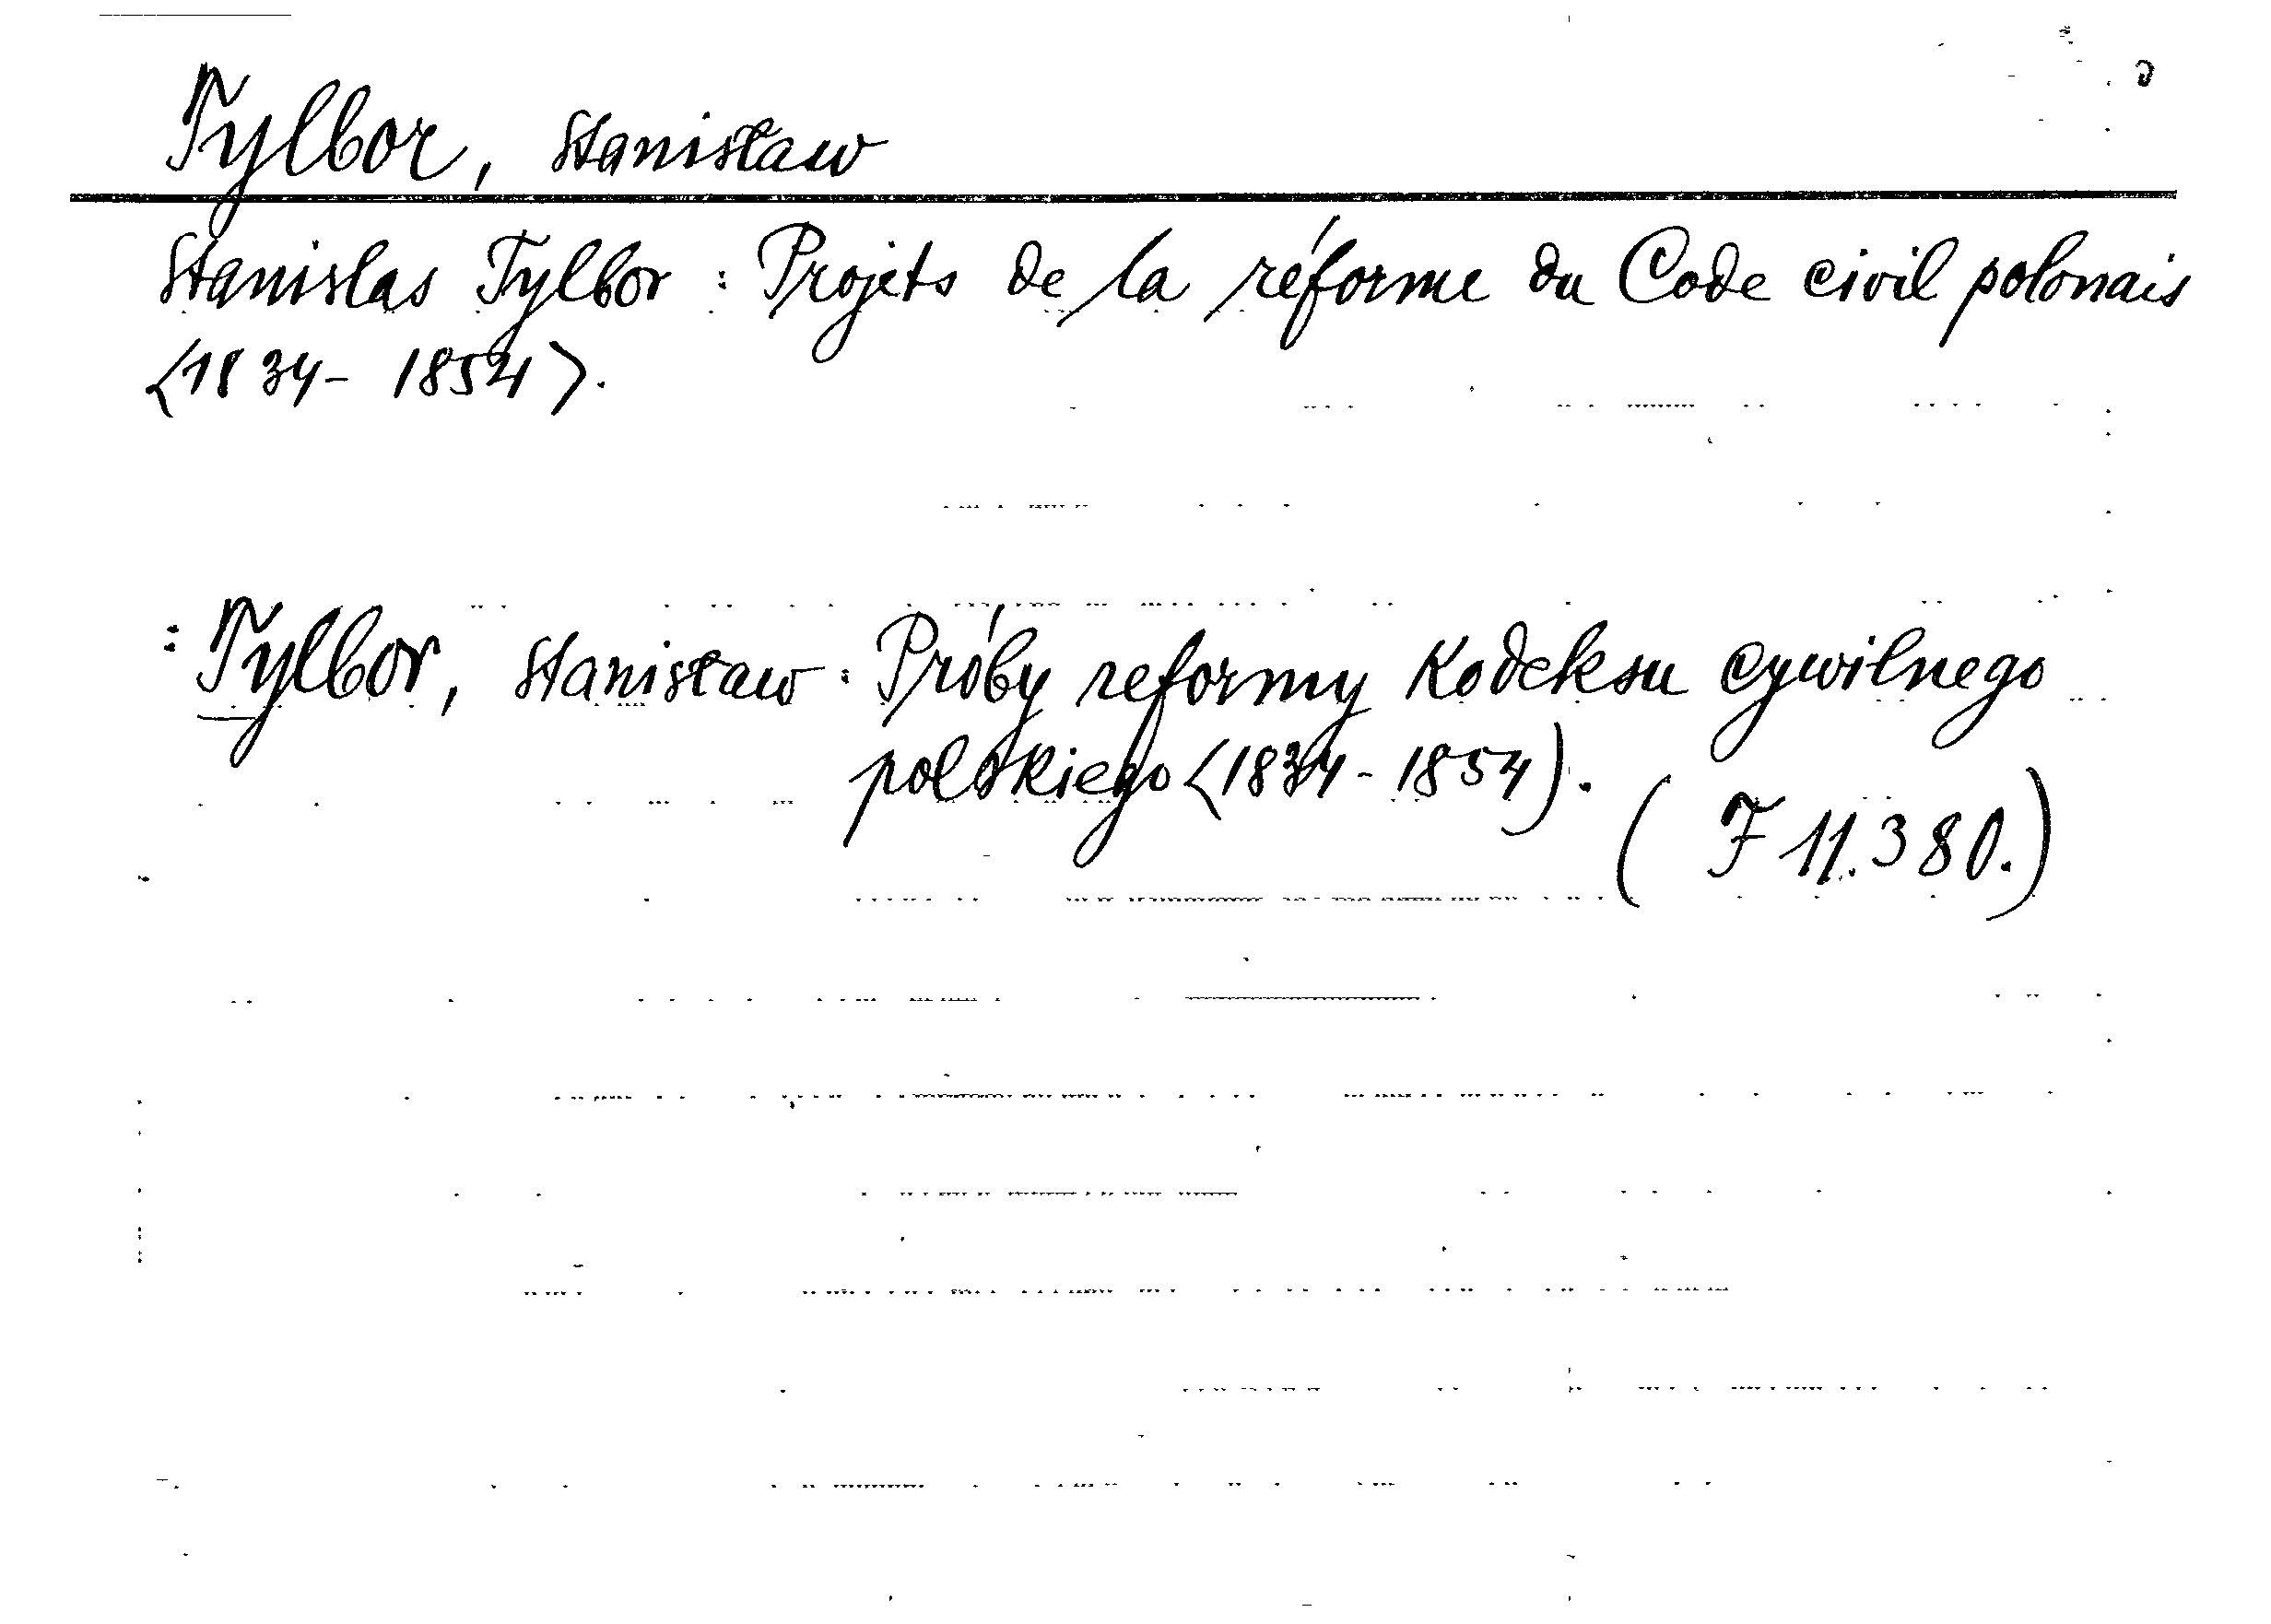 Tylbor, Stanisław
Stanislas Tylbor : Projets de la réforme du Code civil polonais
<1834-1854>.
: Tylbor, Stanisław : Próby reformy Kodeksu cywilnego
polskiego <1834-1854).
( F 11.380.)